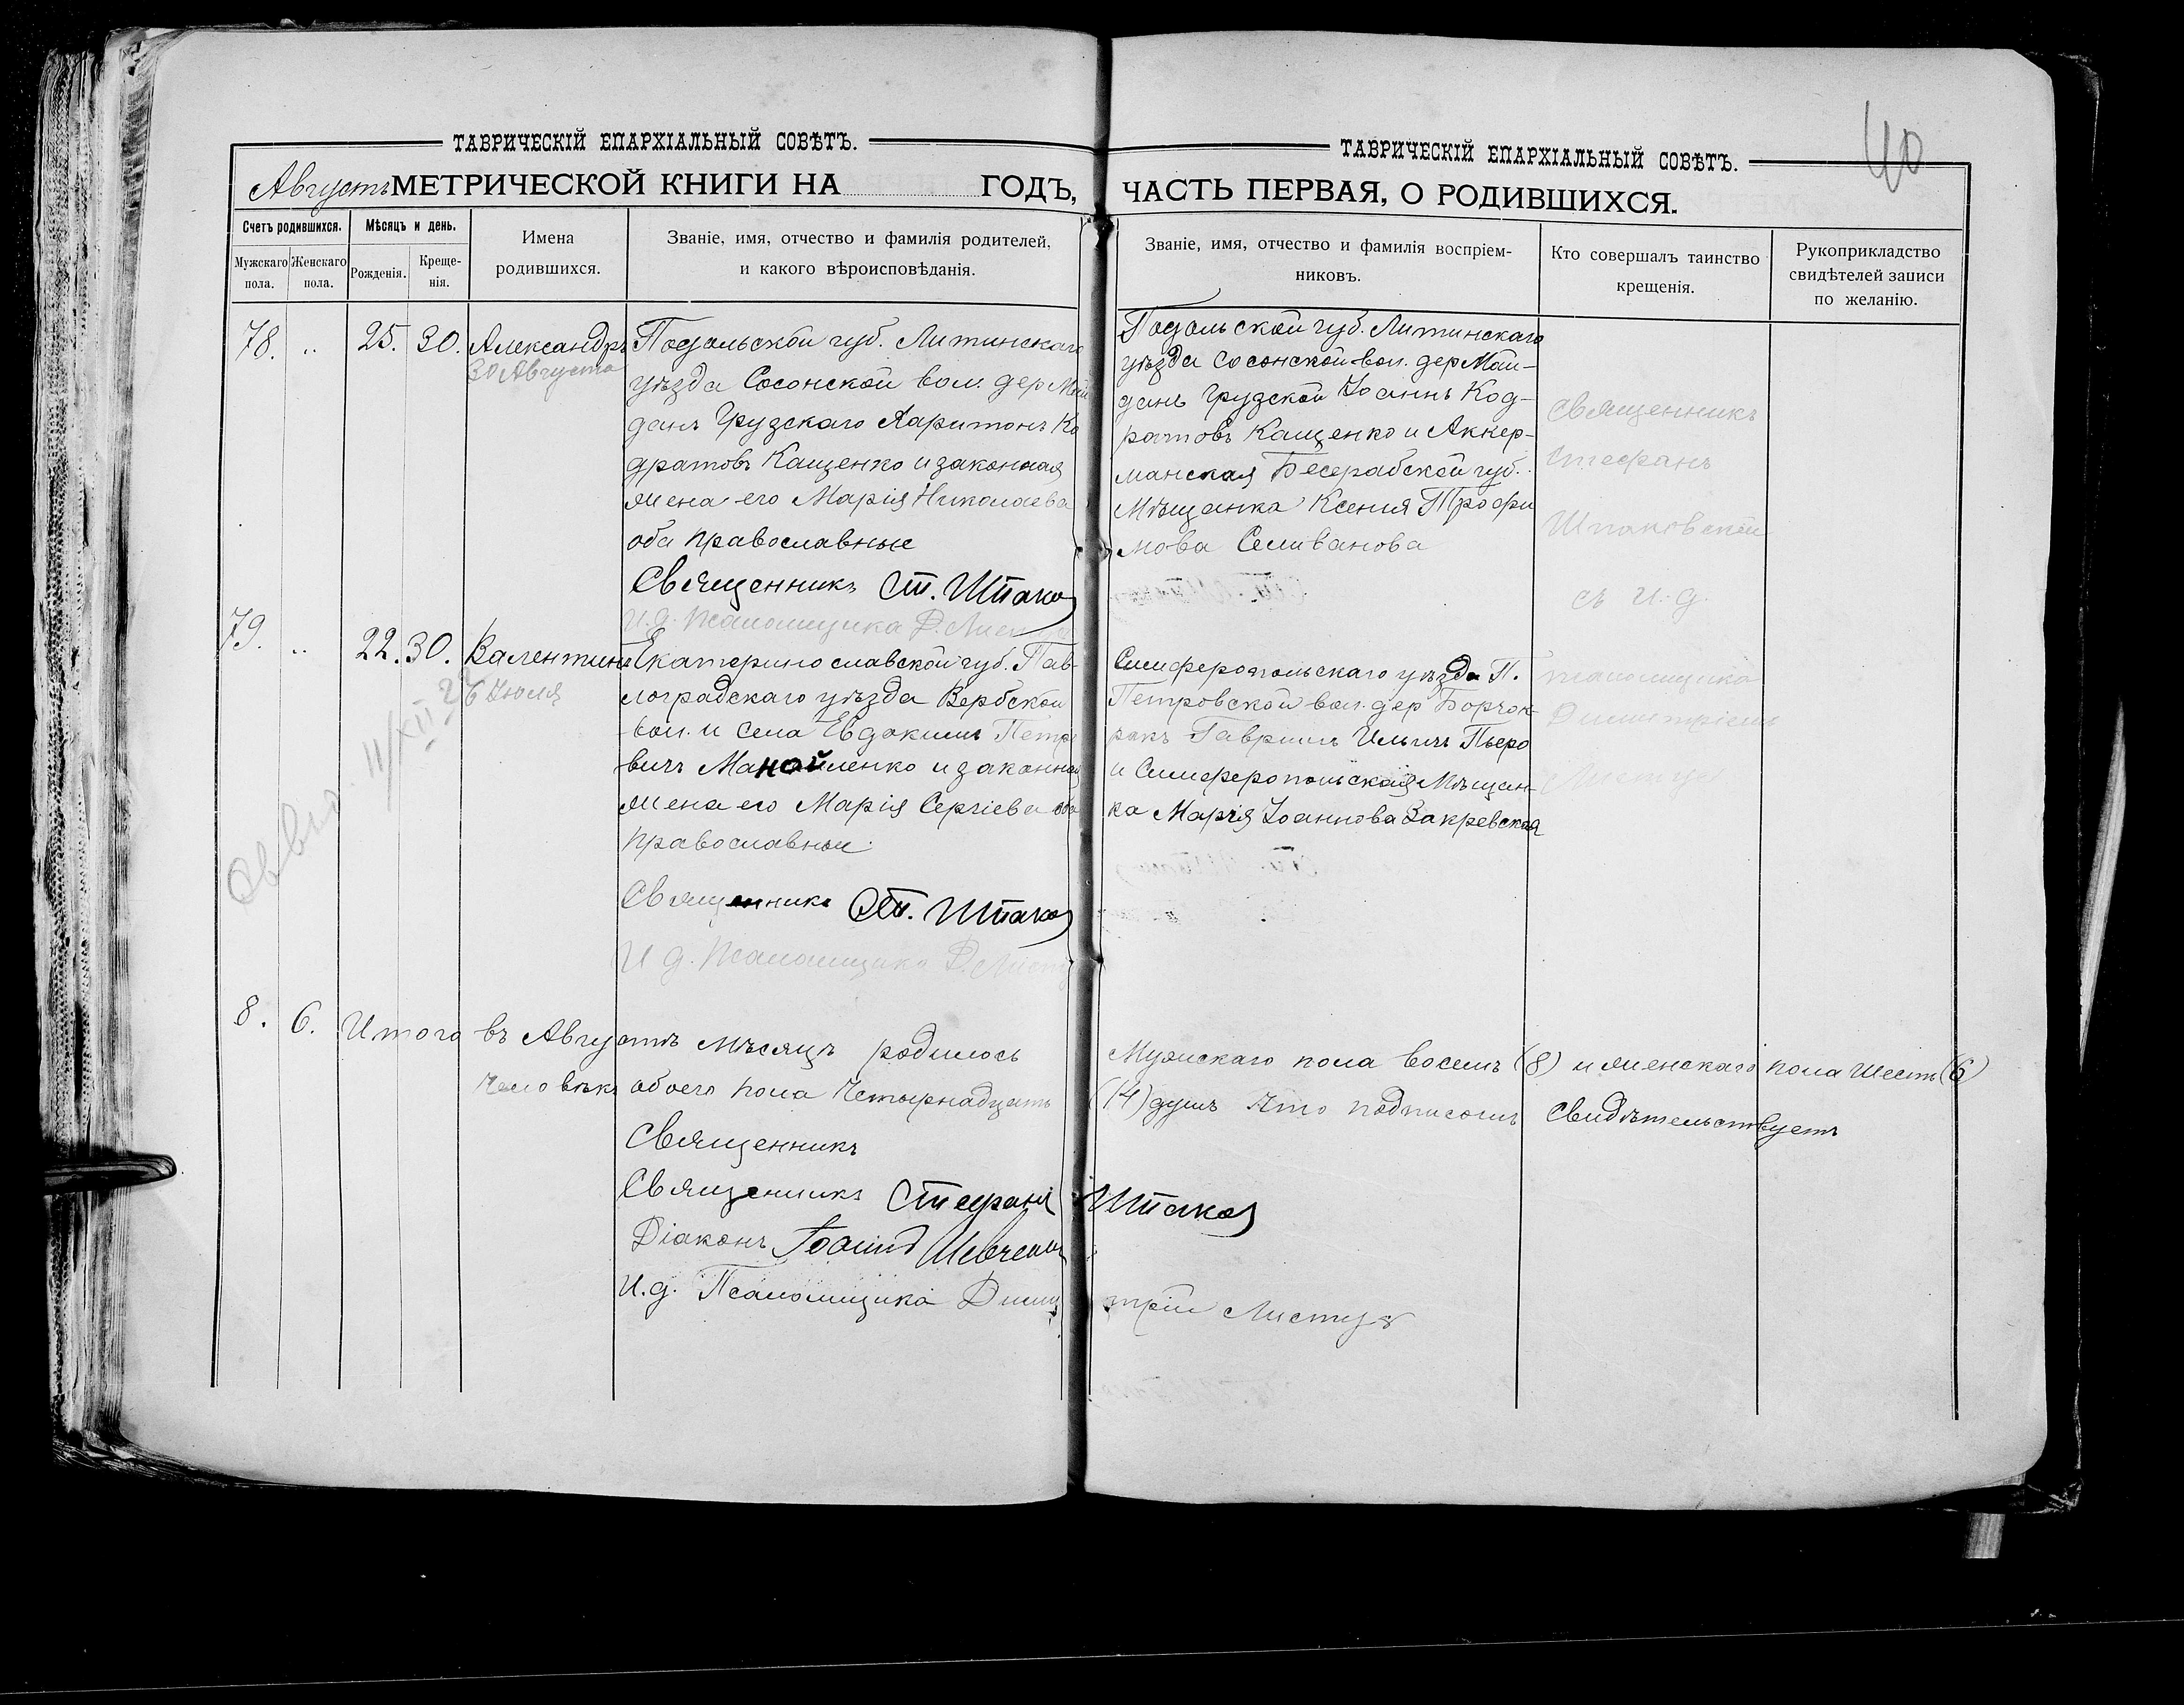 ТАВРИЧЕСКІЙ ЕПАРХІАЛЬНЫЙ СОВѢТЪ.
Августъ МЕТРИЧЕСКОЙ КНИГИ НА ГОДЪ,
Счетъ родившихся.
Мужскаго пола.
Женскаго пола.
Мѣсяцъ и день.
Рожденія.
Креще-
нія.
Имена
родившихся.
Званіе, имя, отчество и фамилія родителей,
и какого вѣроисповѣданія.
78. „ 25. 30. Александръ
30 Августа
Подольской губ. Литинскаго
уѣзда Сосонской вол. дер Май
данъ Грудскаго Харитонъ Ко
дратовъ Кащенко и законная
жена его Марія Николаева
оба православные
Священникъ Ст. Шпако
И.д. Псаломщика Д. Листу
79. „ 22. 30. Валентинъ
Июля
Екатеринославской губ. Пав-
лоградскаго уѣзда Вербской
вол. и села Евдокимъ Петро
вичъ Манойленко и законная
жена его Марія Сергіева оба
православные.
Священникъ Ст. Шпако
И д. Псаломщика Д. Листу
11/XII
8. 6. Итого въ Августѣ мѣсяцѣ родилось
человѣкъ обоего пола четырнадцать
Священникъ
Священникъ Стефанъ
Діаконъ Іоаннъ Шевчен
И.д. Псаломщика Дими
ТАВРИЧЕСКІЙ ЕПАРХІАЛЬНЫЙ СОВѢТЪ.
40
ЧАСТЬ ПЕРВАЯ, О РОДИВШИХСЯ.
Званіе, имя, отчество и фамилія воспріем-
никовъ.
Кто совершалъ таинство
крещенія.
Рукоприкладство
свидѣтелей записи
по желанію.
Подольской губ. Литинскаго
уѣзда Сосонской вол. дер Май-
данъ Грудской Іоаннъ Код-
ратовъ Кащенко и Аккер-
манская Бесерабской губ.
Мѣщанка Ксенія Трофи
мова Селиванова
Симферопольскаго уѣзда П.
Петровской вол. дер Борчок-
ракъ Гавриилъ Ильичъ Пьеро
и Симферопольская Мѣщан-
ка Марія Іоаннова Закревская
Священникъ
Стефанъ
Шпаковской
съ и.д.
псаломщика
Димитріемъ
Мужскаго пола восемь (8) и женскаго пола шесть (6)
(14) душъ что подписомъ свидѣтельствуетъ
Шпако
трій Листу